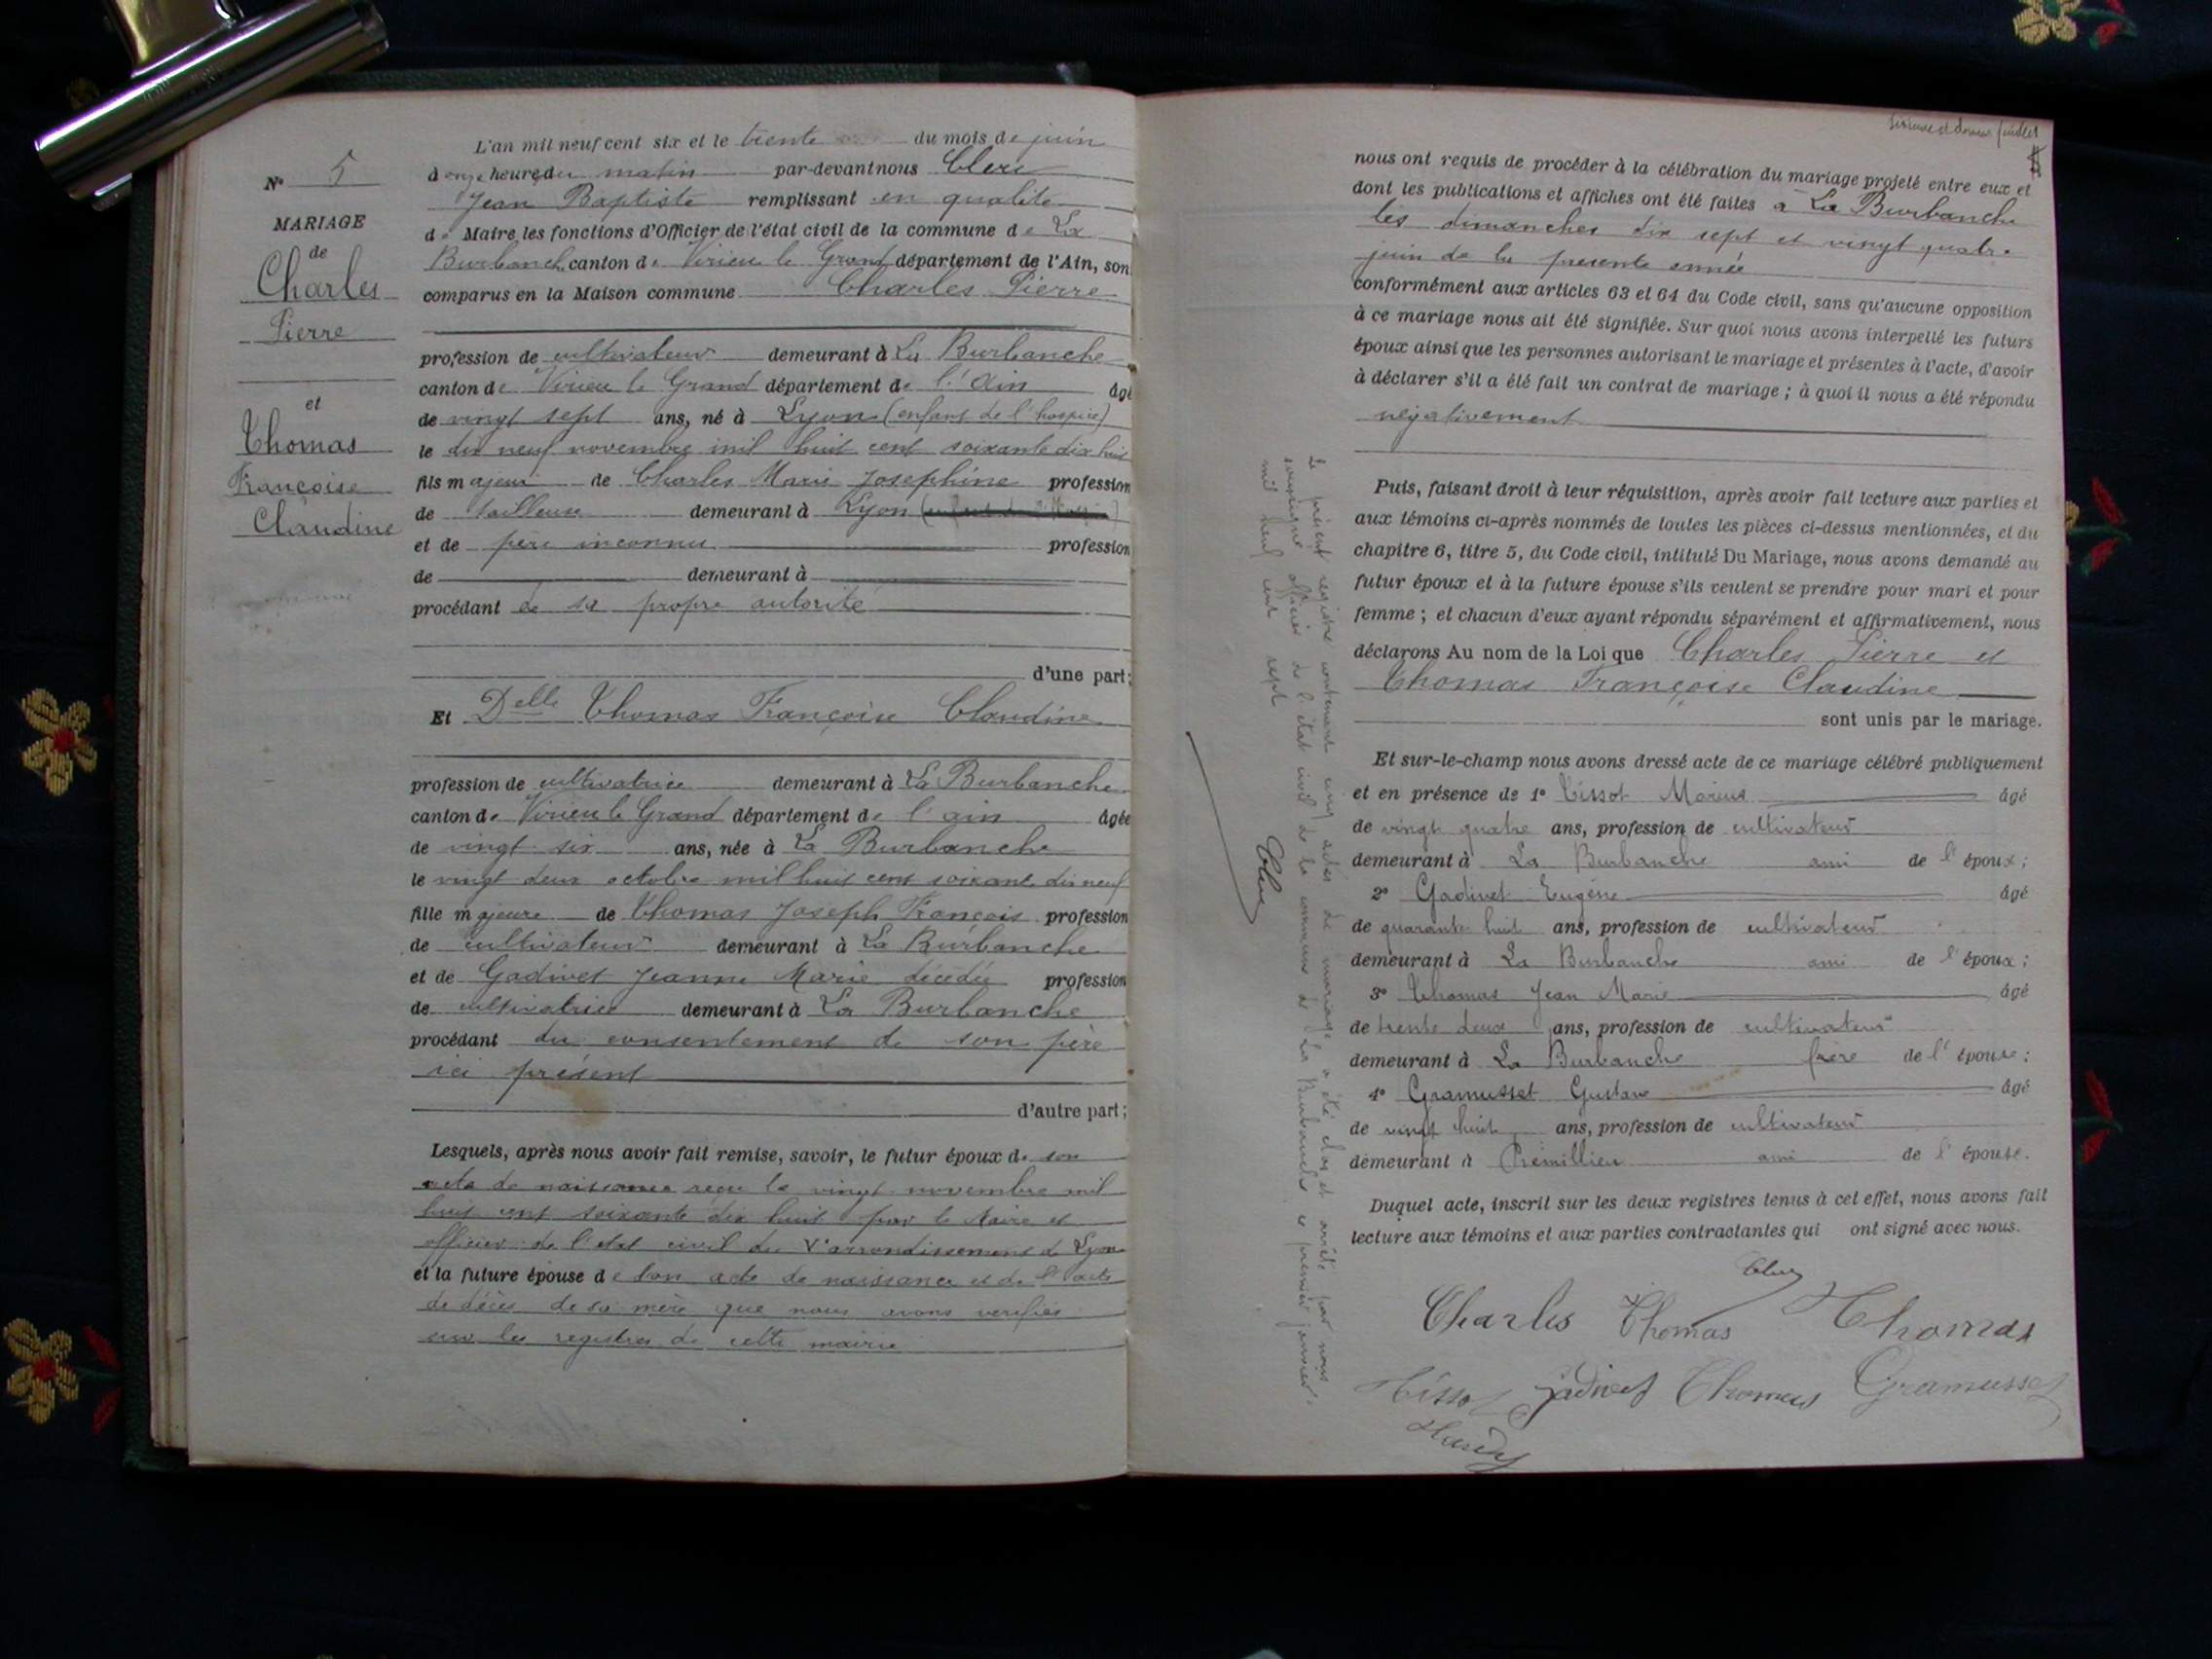 N° 5
MARIAGE
de
Charles
Pierre
et
Thomas
Françoise
Claudine
L'an mil neuf cent six et le trente du mois de juin
à onze heures du matin par-devant nous Clerc
Jean Baptiste remplissant en qualité
de Maire les fonctions d'Officier de l'état civil de la commune de La
Burbanche canton de Virieu le Grand département de l'Ain, son
comparus en la Maison commune Charles Pierre
profession de cultivateur demeurant à La Burbanche
canton de Virieu le Grand département de l'Ain âgé
de vingt sept ans, né à Lyon (enfant de l'hospice)
le dix neuf novembre mil huit cent soixante dix huit
fils majeur de Charles Marie Josephine profession
de tailleuse demeurant à Lyon
et de père inconnu profession
de demeurant à
procédant de sa propre autorité
d'une part;
Et Delle Thomas Françoise Claudine
profession de cultivatrice demeurant à La Burbanche
canton de Virieu le Grand département de l'ain âgée
de vingt six ans, née à La Burbanche
le vingt deux octobre mil huit cent soixante dix neuf
fille majeure de Thomas Joseph François profession
de cultivateur demeurant à La Burbanche
et de Gadivet Jeanne Marie décédée profession
de cultivatrice demeurant à La Burbanche
procédant du consentement de son père
ici présent
d'autre part;
Lesquels, après nous avoir fait remise, savoir, le futur époux de son
acte de naissance reçu le vingt novembre mil
huit cent soixante dix huit par le Maire et
officier de l'etat civil du Ve arrondissement de Lyon
et la future épouse de son acte de naissance et de l'acte
de décès de sa mère que nous avons verifiés
sur les registres de cette mairie
Sixième et dernier feuillet
nous ont requis de procéder à la célébration du mariage projeté entre eux et
dont les publications et affiches ont été faites à La Burbanche
les dimanches dix sept et vingt quatre
juin de la presente année
conformément aux articles 63 et 64 du Code civil, sans qu'aucune opposition
à ce mariage nous ait été signifiée. Sur quoi nous avons interpellé les futurs
époux ainsi que les personnes autorisant le mariage et présentes à l'acte, d'avoir
à déclarer s'il a été fait un contrat de mariage; à quoi il nous a été répondu
négativement
Puis, faisant droit à leur réquisition, après avoir fait lecture aux parties et
aux témoins ci-après nommés de toutes les pièces ci-dessus mentionnées, et du
chapitre 6, titre 5, du Code civil, intitulé Du Mariage, nous avons demandé au
futur époux et à la future épouse s'ils veulent se prendre pour mari et pour
femme; et chacun d'eux ayant répondu séparément et affirmativement, nous
déclarons Au nom de la Loi que Charles Pierre et
Thomas Françoise Claudine
sont unis par le mariage.
Et sur-le-champ nous avons dressé acte de ce mariage célébré publiquement
et en présence de 1° Tissot Marius âgé
de vingt quatre ans, profession de cultivateur
demeurant à La Burbanche ami de l'époux;
2° Gadivet Eugène âgé
de quarante huit ans, profession de cultivateur
demeurant à La Burbanche ami de l'époux;
3° Thomas Jean Marie âgé
de trente deux ans, profession de cultivateur
demeurant à La Burbanche frère de l'épouse;
4° Gramusset Gustave âgé
de vingt huit ans, profession de cultivateur
demeurant à Prémillieu ami de l'épouse.
Duquel acte, inscrit sur les deux registres tenus à cet effet, nous avons fait
lecture aux témoins et aux parties contractantes qui ont signé avec nous.
Clerc
Charles Thomas Thomas
Tissot Gadivet Thomas Gramusset
Le présent registre contenant cinq actes de mariage a été clos et arrêté par nous
soussigné officier de l'état civil de la commune de La Burbanche ce premier janvier
mil neuf cent sept
Clerc